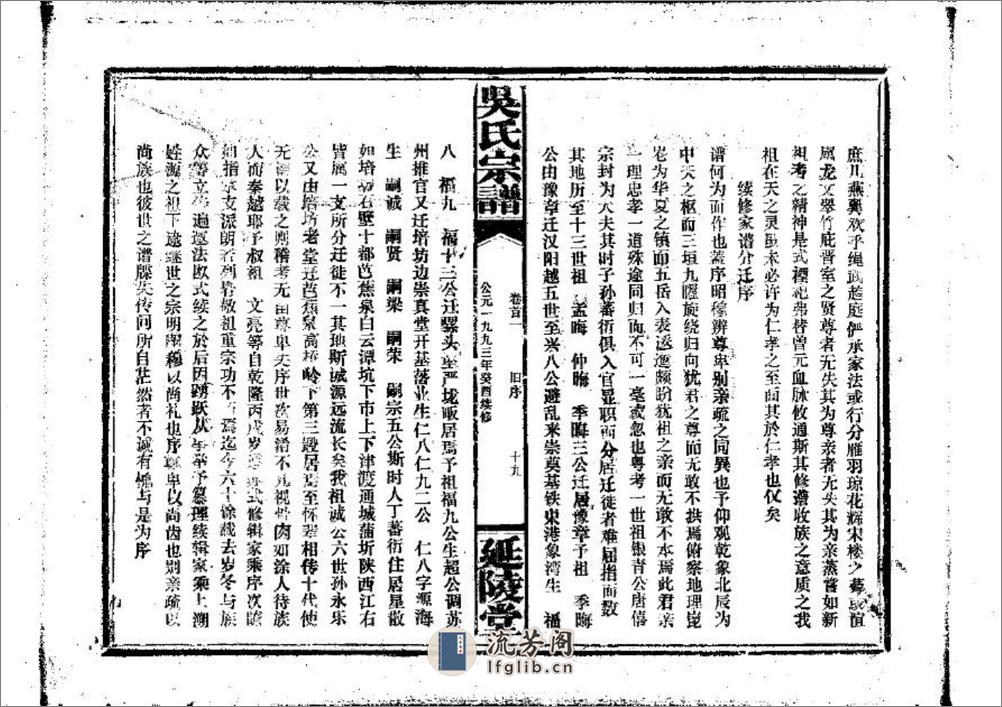 庶几燕翼欢乎绳武趋庭俨承家法或行分雁羽琼花辉宋楼之
龙文翠竹庇晋室之贤尊者无失其为尊亲者无失其为亲蒸尝如新
祖考之精神是式禋祀弗替曾元血脉攸通斯其修谱收族之意质之我
祖在天之灵或未必许为仁孝之至而其於仁孝也仅矣
续修家谱分迁序
谱何为而作也盖序昭穆辨尊卑别亲疏之同異也予仰观乾象北辰为
中天之枢而三垣九曜旋绕归向犹君之尊而无敢不拱焉俯察地理崑
崙为华夏之镇而五岳入表逶迤频盼犹祖之亲而无敢不本焉此君亲
一理忠孝一道殊途同归而不可一毫紊忽也粤考一世祖银青公唐僖
宗封为大夫其时子孙蕃衍俱入官显职而分居迁徙者难屈指而数
其地历至十三世祖 孟晦 仲晦 季晦三公迁居豫章予祖 季晦
公由豫章迁汉阳越五世至兴八公避乱来崇莫基铁束港象湾生 福
吳氏宗譜
卷首一 旧序 十九
公元一九九三年癸酉续修
延陵堂
八 福九 福十三公迁骡头 严垅畈居焉予祖福九公生超公调苏
州推官又迁培坊边崇真堂开基落业生仁八仁九二公 仁八字源海
生 嗣诚 嗣贤 嗣梁 嗣荣 嗣宗五公斯时人丁蕃衍住居星散
如培坊石壁十都芭蕉泉白云潭坑下市上下津渡通城蒲圻陕西江右
皆属一支所分迁徙不一其地斯诚源远流长矣我祖诚公六世孙永乐
公又由培坊老堂迁芭蕉泉高桥岭下第三段居焉至怀翠相传十代使
无谱以载之则稽考无由尊卑失序世次易淆不几视骨肉如涂人待族
人而秦越耶予叔祖 文亮等自乾隆丙戌岁 式修辑家乘序次
如指掌支派朗若列眉敬祖重宗功不 焉迄今六十馀载去岁冬与族
众等立 遍遵法欧式续之於后因踴跃从 举予纂理续辑家乘上溯
姓源之祖下逮继世之宗明昭穆以尚礼也序尊卑以尚齿也别亲疏以
尚族也彼世之谱牒失传问所自茫然者不诚有愧与是为序
流芳阁
lfglib.cn